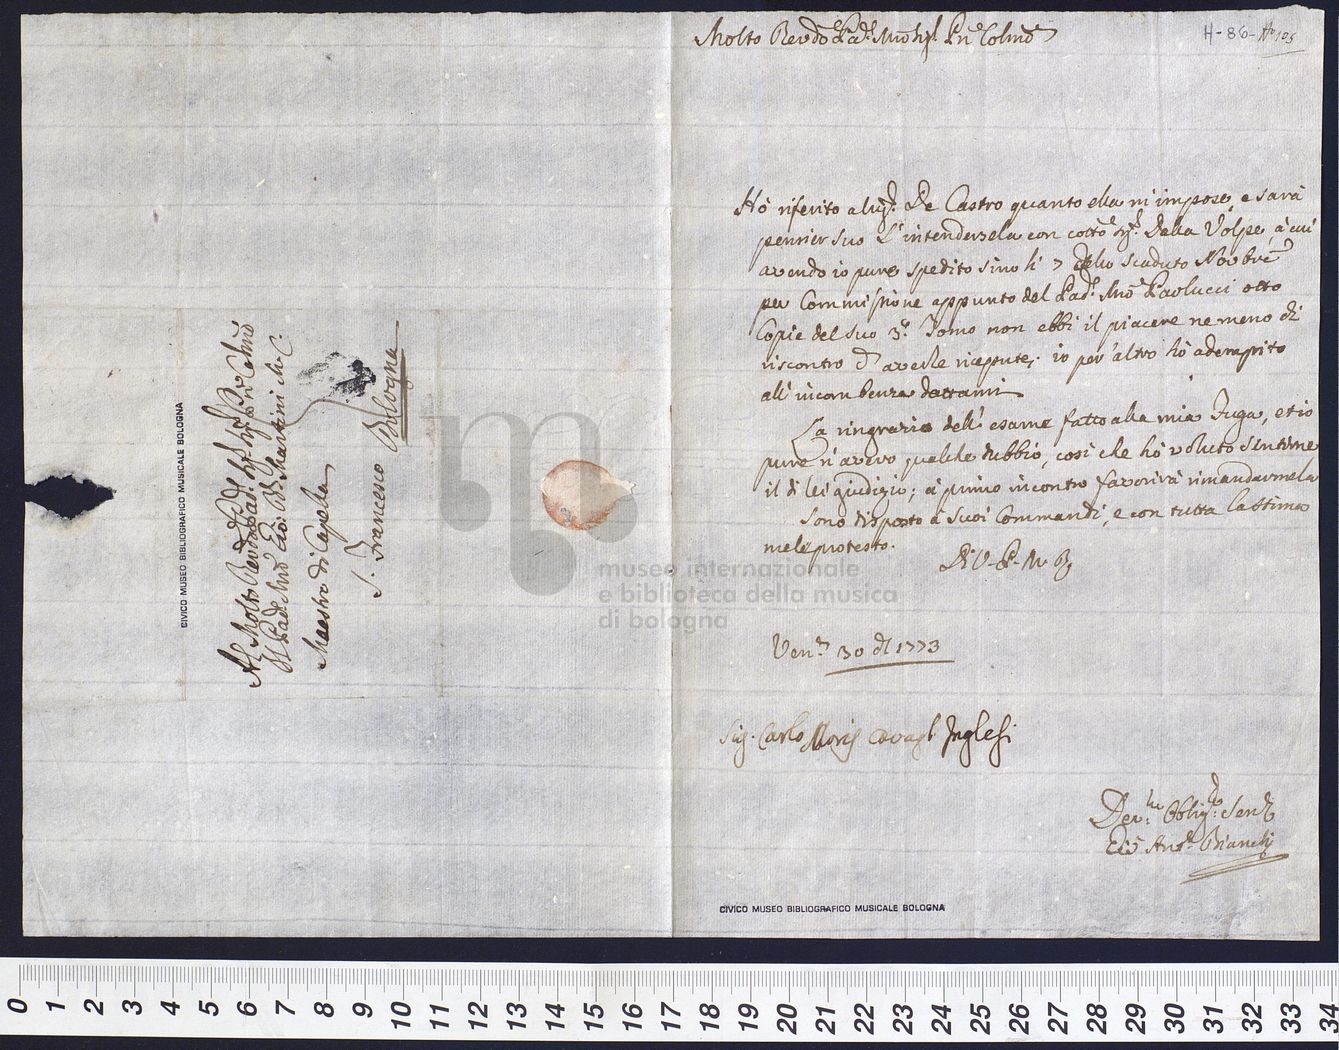 Molto Revdo Pad. Mro Sig. Pne Colmo
H-86- No 105
Hò riferito al Sig.r De Castro quanto ella m'impose, e sarà
pensier suo l'intendersela con cotto Sig.r Dalla Volpe, à cui
avendo io pure spedito sino li 7 dello scaduto Novbre
per Commissione appunto del Pad. Mro Paolucci otto
Copie del suo 3.º Tomo non ebbi il piacere ne meno di
riscontro d'averle ricepute; io per altro hò adempito
all'incombenza dattami
La ringrazio dell'esame fatto alla mia Fuga, et io
pure n'avevo qualche dubbio, così che hò voluto sentirne
il di lei giudizio; à primo incontro favorirà rimandarmela
Sono disposto à suoi Commandi, e con tutta la stima
mele protesto.
Di V. P. M. R.
Ven.a 30 1773
Sig. Carlo Inglesi
Dev.mo Obblig.mo Serv.
Gio Ant.o Bianchi
Al Molto Revdo Pad.
Il Pad. Mro Gio: Ba Martini M. C.
Maestro di Capella
S. Francesco Bologna
CIVICO MUSEO BIBLIOGRAFICO MUSICALE BOLOGNA
CIVICO MUSEO BIBLIOGRAFICO MUSICALE BOLOGNA
museo internazionale
e biblioteca della musica
di bologna
0 1 2 3 4 5 6 7 8 9 10 11 12 13 14 15 16 17 18 19 20 21 22 23 24 25 26 27 28 29 30 31 32 33 34